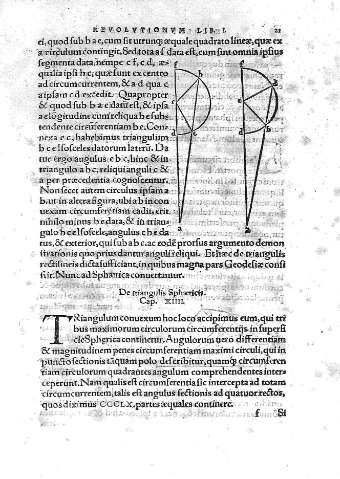 REVOLVTIONVM LIB. I. 21
ei, quod sub b a e, cum sit utrunque æquale quadrato lineæ, quæ ex
a circulum contingit. Sed tota a f data est, cum sint omnia ipsius
segmenta data, nempe c f, c d, æ⸗
qualia ipsi b c, quæ sunt ex centro
ad circumcurrentem, & a d qua c
a ipsam c d excedit. Quapropter
& quod sub b a e datū est, & ipsa
a e lōgitudine cum reliqua b e sub⸗
tendente circūferentiam b e. Con⸗
nexa e c, habebimus triangulum
b c e Isosceles datorum laterū. Da
tur ergo angulus e b c, hinc & in
triangulo a b c, reliqui anguli c &
a per præcedentia cognoscentur.
Non secet autem circulus ipsam a
b, ut in altera figura, ubi a b in con
uexam circumferentiam cadit, erit
nihilo minus b e data, & in trian⸗
gulo b c e Isoscele, angulus c b e da
tus, & exterior, qui sub a b c. ac eodē prorsus argumento demon
strationis quo prius dantur anguli reliqui. Et hæc de triangulis
rectilineis dicta sufficiant, in quibus magna pars Geodesiæ consi
stit. Nunc ad Sphærica conuertamur.
De triangulis Sphæricis.
Cap. XIIII.
TRiangulum conuexum hoc loco accipimus eum, qui tri
bus maximorum circulorum circumferentijs in superfi
cie Sphærica continetur. Angulorum uero differentiam
& magnitudinem penes circumferentiam maximi circuli, qui in
puncto sectionis tāquam polo describitur, quamque circumferen
tiam circulorum quadrantes angulum comprehendentes inter⸗
ceperunt. Nam qualis est circumferentia sic intercepta ad totam
circumcurrentem, talis est angulus sectionis ad quatuor rectos,
quos diximus CCCLX. partes æquales continere.
f Si